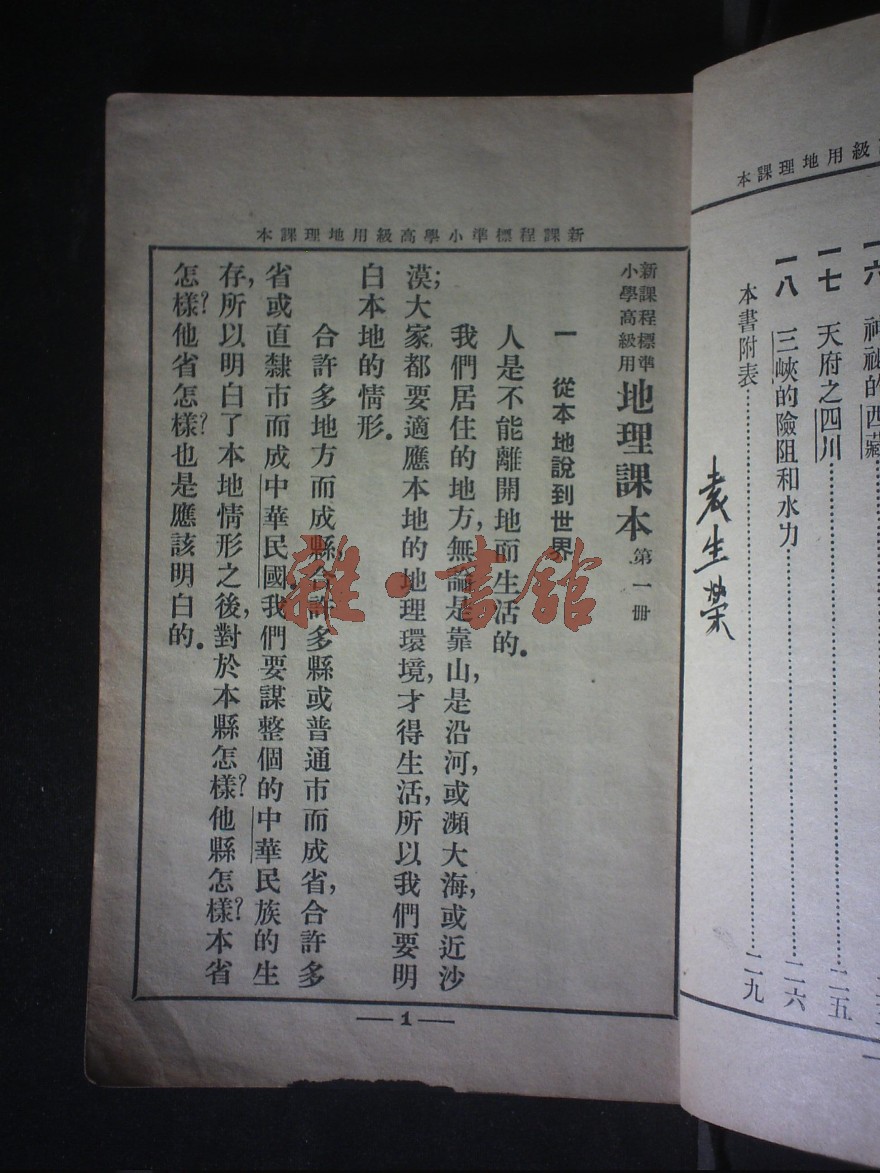 級用地理課本
一六 神祕的西藏
一七 天府之四川 二五
一八 三峽的險阻和水力 二六
本書附表 二九
袁生榮
新課程標準小學高級用地理課本
新課程標準
小學高級用
地理課本 第一册
一 從本地說到世界
人是不能離開地面生活的。
我們居住的地方,無論是靠山,是沿河,或瀕大海,或近沙
漠;大家都要適應本地的地理環境,才得生活,所以我們要明
白本地的情形。
合許多地方而成縣,合許多縣或普通市而成省,合許多
省或直隸市而成中華民國。我們要謀整個的中華民族的生
存,所以明白了本地情形之後,對於本縣怎樣?他縣怎樣?本省
怎樣?他省怎樣?也是應該明白的。
1
雜·書館